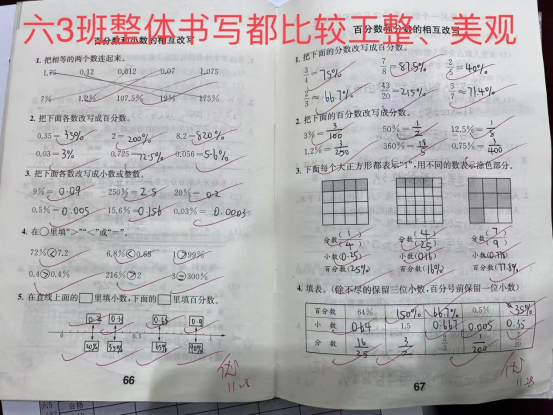 六3班整体书写都比较工整、美观
百分数和小数的相互改写
1. 把相等的两个数连起来。
1.75 0.12 0.012 0.07 1.075
7% 1.2% 107.5% 12% 175%
2. 把下面各数改写成百分数。
0.35=35% 2=200% 8.2=820%
0.03=3% 0.725=72.5% 0.056=5.6%
3. 把下面各数改写成小数或整数。
9%=0.09 250%=2.5 20%=0.2
0.5%=0.005 15.6%=0.156 0.03%=0.0003
4. 在○里填“>”“<”或“=”。
72%<7.2 6.8%<0.68 1>99%
0.4>0.4% 216%>2 3=300%
5. 在直线上面的□里填小数，下面的□里填百分数。
0 1
66
11.28
百分数和分数的相互改写
1. 把下面的分数改写成百分数。
3/4=75% 7/8=87.5% 2/5=40%
2/3≈66.7% 43/20=215% 5/7≈71.4%
2. 把下面的百分数改写成分数。
3%=3/100 50%=1/2 12.5%=1/8
1.2%=3/250 360%=18/5 0.75%=3/400
3. 下面每个大正方形都表示“1”，用不同的数表示涂色部分。
分数(1/4) 分数(4/25) 分数(7/9)
小数(0.25) 小数(0.16) 小数(0.778)
百分数(25%) 百分数(16%) 百分数(77.8%)
4. 填表。(除不尽的保留三位小数，百分号前保留一位小数)
百分数 64% 150% 66.7% 0.5% 35%
小数 0.64 1.5 0.667 0.005 0.35
分数 16/25 3/2 2/3 1/200
67
11.28